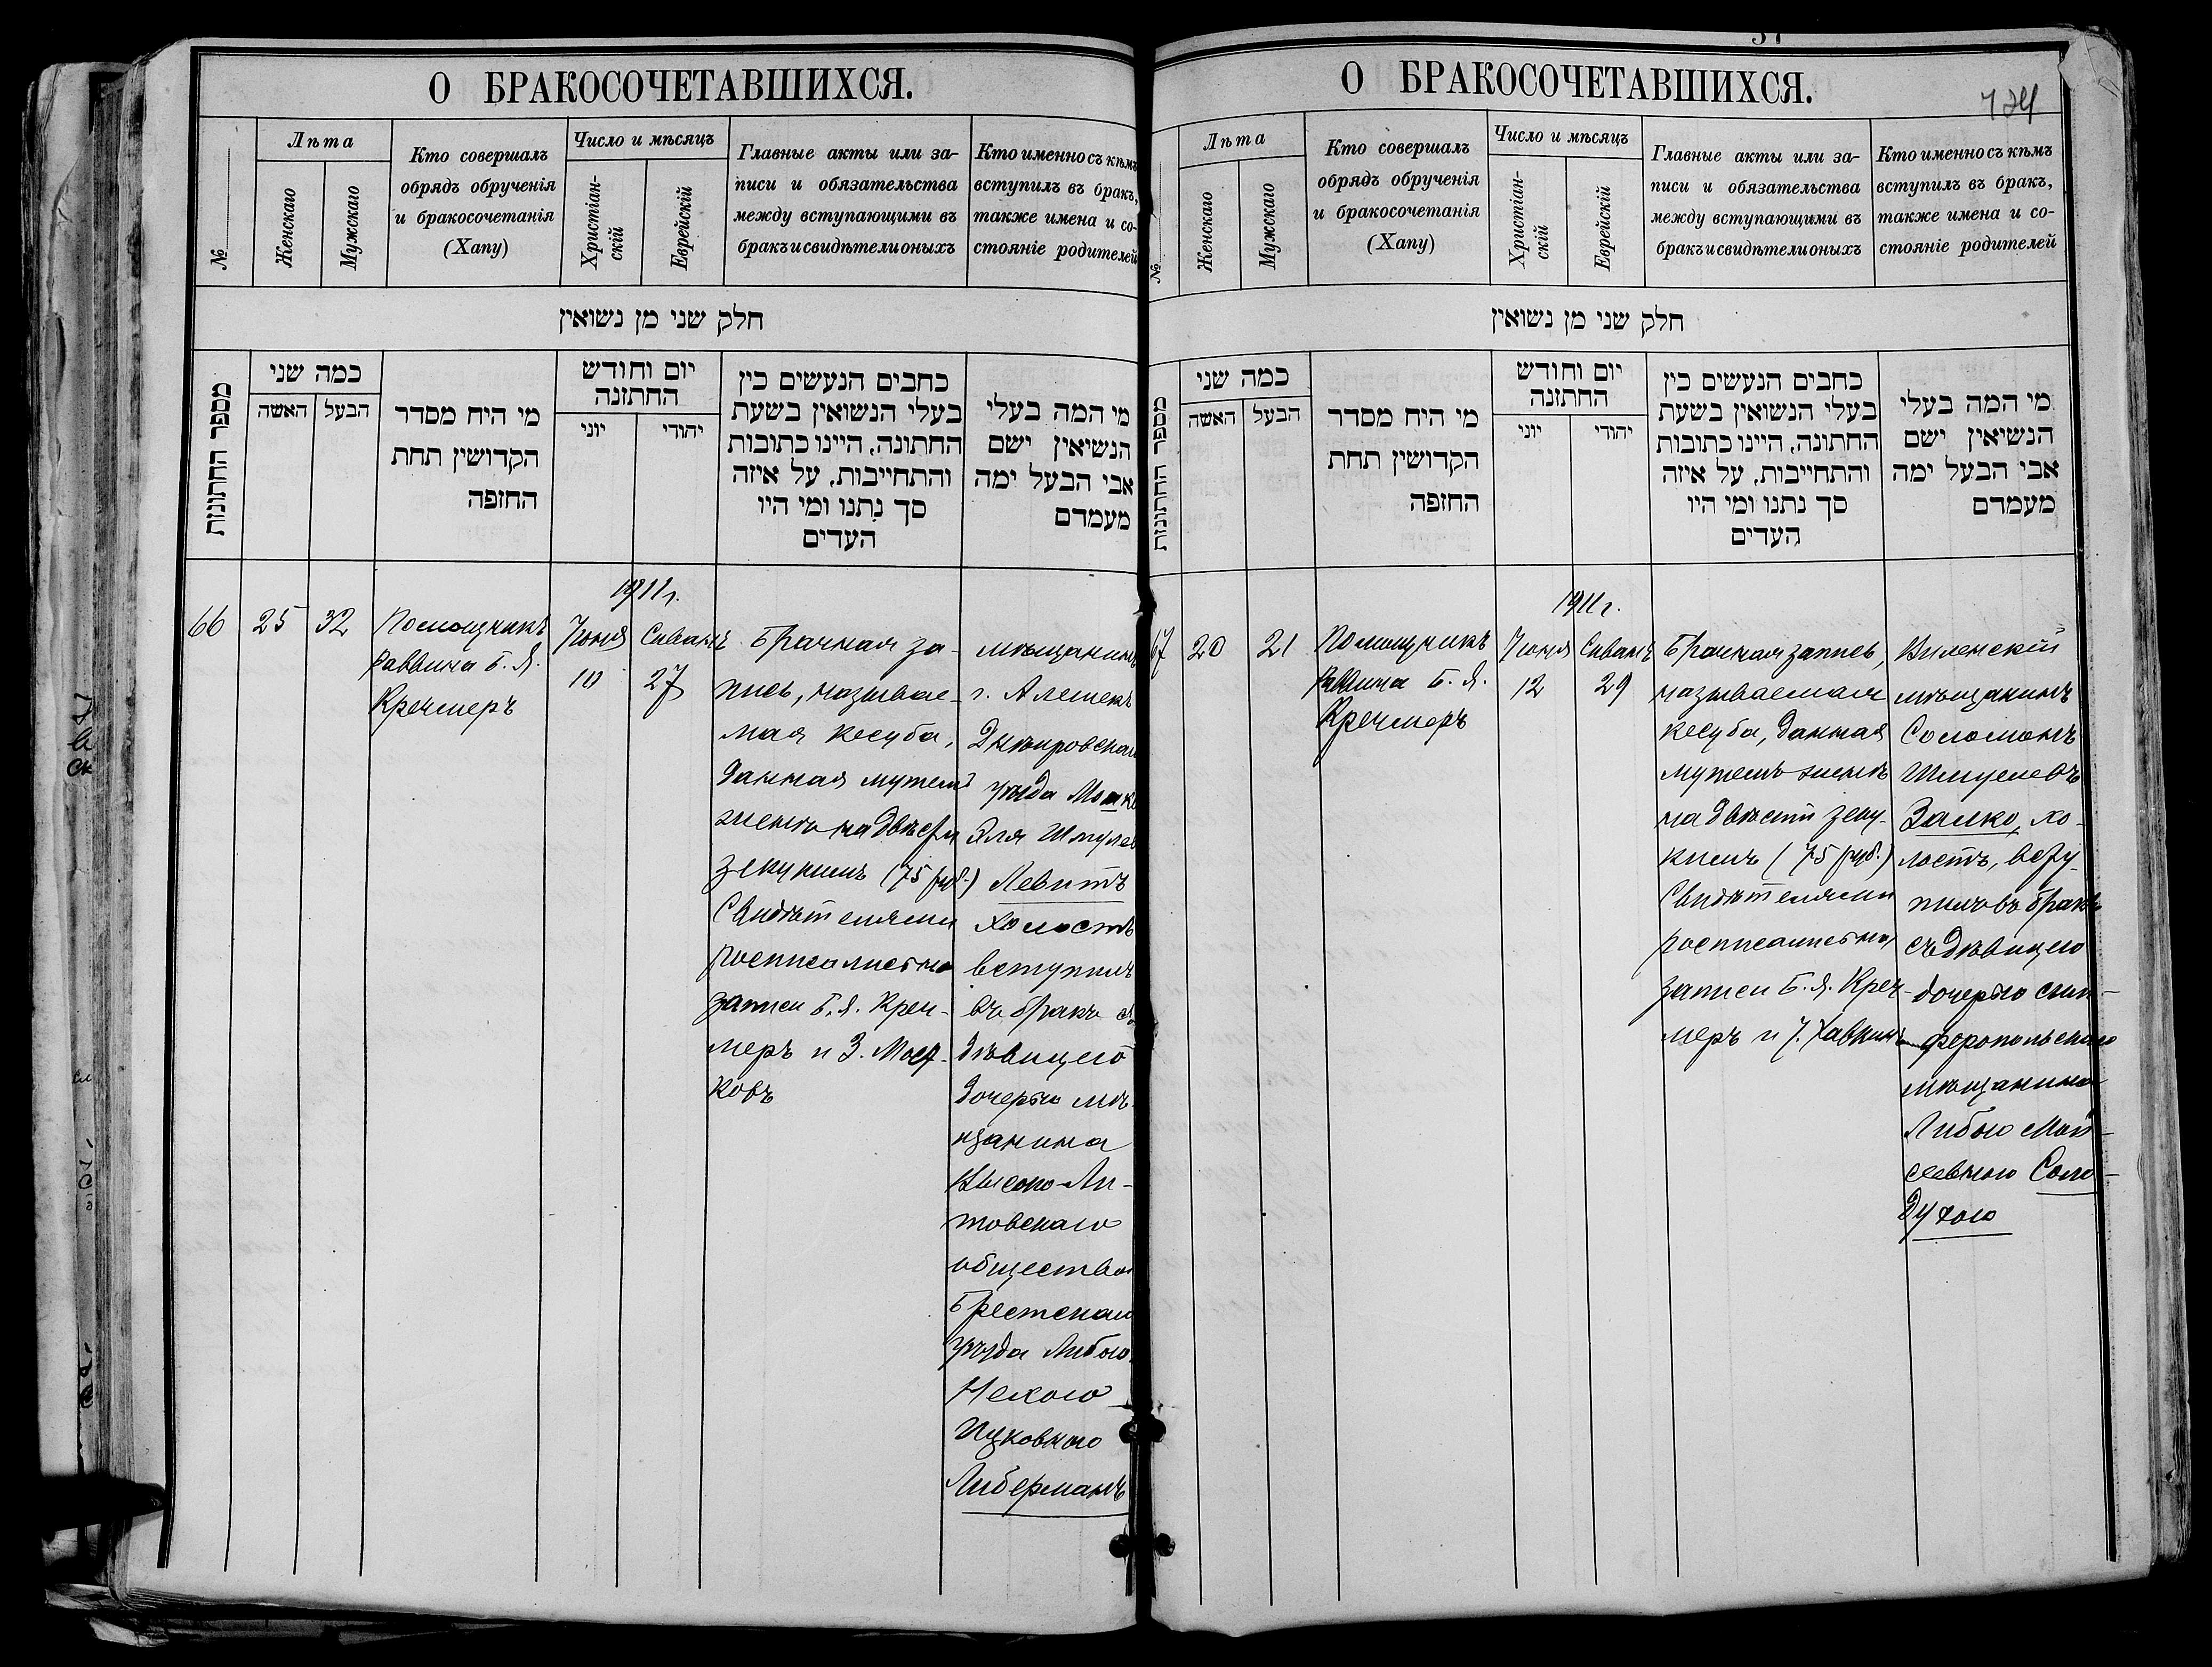 О БРАКОСОЧЕТАВШИХСЯ.
№
Лѣта
Женскаго
Мужскаго
Кто совершалъ
обрядъ обрученія
и бракосочетанія
(Хапу)
Число и мѣсяцъ
Христіан-
скій
Еврейскій
Главные акты или за-
писи и обязательства
между вступающими въ
бракъ и свидѣтели оныхъ
Кто именно съ кѣмъ
вступилъ въ бракъ,
также имена и со-
стояніе родителей
חלק שני מן נשואין
מספר החתונות
כמה שני
האשה
הבעל
מי היה מסדר
הקדושין תחת
החופה
יום וחודש
החתונה
יוני
יהודי
כתבים הנעשים בין
בעלי הנשואין בשעת
החתונה, היינו כתובות
והתחייבות, על איזה
סך נתנו ומי היו
העדים
מי המה בעלי
הנשיאין ישם
אבי הבעל ימה
מעמדם
66
25
32
Помощникъ
раввина Б. Я.
Кречмеръ
1911 г.
Іюня
10
Сиванъ
27
Брачная за-
пись, называе-
мая кесуба,
данная мужемъ
женѣ на двѣсти
зекукимъ (75 руб.)
Свидѣтелями
росписались на
записи Б. Я. Креч-
меръ и З. Мос
ковъ
мѣщанинъ
г. Алешекъ
Днѣпровскаго
уѣзда Мошко
Эля Шмулев
Левитъ
холостъ
вступилъ
въ бракъ съ
дѣвицею
дочерью мѣ-
щанина
Высоко-Ли-
товскаго
общества
Брестскаго
уѣзда Либою
Нехою
Ицковною
Либерманъ
О БРАКОСОЧЕТАВШИХСЯ.
№
Лѣта
Женскаго
Мужскаго
Кто совершалъ
обрядъ обрученія
и бракосочетанія
(Хапу)
Число и мѣсяцъ
Христіан-
скій
Еврейскій
Главные акты или за-
писи и обязательства
между вступающими въ
бракъ и свидѣтели оныхъ
Кто именно съ кѣмъ
вступилъ въ бракъ,
также имена и со-
стояніе родителей
חלק שני מן נשואין
מספר החתונות
כמה שני
האשה
הבעל
מי היה מסדר
הקדושין תחת
החופה
יום וחודש
החתונה
יוני
יהודי
כתבים הנעשים בין
בעלי הנשואין בשעת
החתונה, היינו כתובות
והתחייבות, על איזה
סך נתנו ומי היו
העדים
מי המה בעלי
הנשיאין ישם
אבי הבעל ימה
מעמדם
67
20
21
Помощникъ
раввина Б. Я.
Кречмеръ
1911 г.
Іюня
12
Сиванъ
29
Брачная запись,
называемая
кесуба, данная
мужемъ женѣ
на двѣсти зеку-
кимъ (75 руб.)
Свидѣтелями
росписались на
записи Б. Я. Креч-
меръ и І. Хавкинъ
Виленскій
мѣщанинъ
Соломонъ
Шмуелевъ
Залко, хо-
лостъ, всту-
пилъ въ бракъ
съ дѣвицею
дочерью сим-
феропольскаго
мѣщанина
Либою Мой-
сеевною Соло
духою